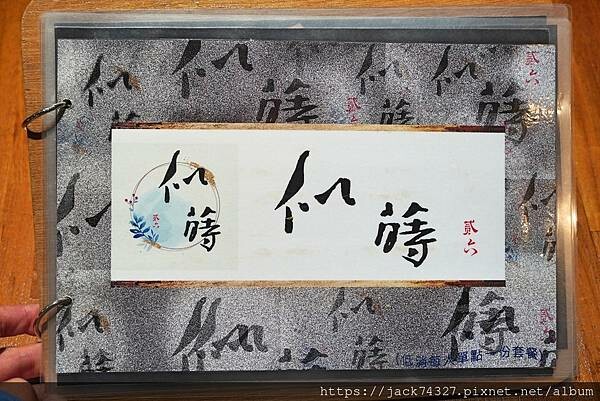 似
蒔
貳六
似
蒔
貳六
貳六
蒔
(低消每人單點一份套餐)
https://jack74327.pixnet.net/album